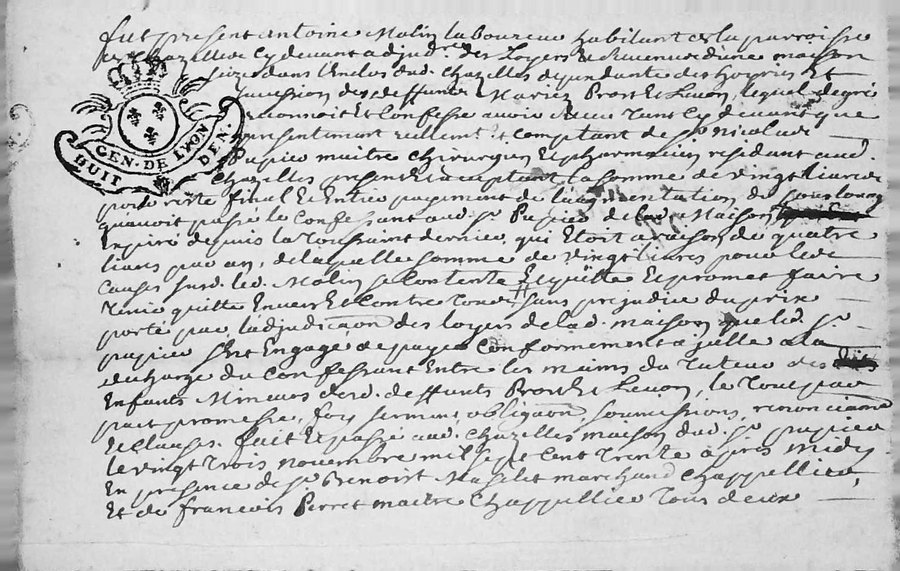 fut present antoine Molin laboureur habitant en la parroisse
de Chazelles Cy devant adjudre des Loyers & revenus d'une maison
size dans l'Enclos dud. Chazelles dependante des hoyries Et
succession des deffunts Mariez Prost Et Luvon, lequel de gré
reconnoit Et Confesse avoir Receu tant Cy devant que
presentement reellemt. Et comptant de sr. Nicolas
Papier maitre chirurgien Et pharmacien residant aud.
Chazelles present Et acceptant la somme de vingt livres
pour reste final Et Entier payement de l'augmentation du sous louage
qu'avoit passé le Confessant aud. sr. Papier de lad. Maison
Expiré depuis la Toussaint dernier, qui Etoit a raison de quatre
livres par an, de laquelle somme de vingt livres pour led.
Causes susd. led. Molin se Contente Et quitte Et promet faire
Tenir quitte Envers Et Contre Tous, sans prejudice du prix
porté par l'adjudicaon des loyers de lad. maison que led. sr.
papier s'Est Engagé de payer Conformement a icelle a la
decharge du Confessant Entre les mains du Tuteur des
Enfants Mineurs desd. deffunts Prost Et Luvon, le Tout par
part promesse, foy serment obligaon soumissions, renonciaons
Et Clauses. fait Et passé aud. Chazelles maison dud. sr. papier
le vingt trois novembre mil sept Cent Trente apres midy
En presence de sr. Benoist marchand Chappellier,
Et de francois Perret maitre Chappellier Tous deux
GEN. DE LYON
HUIT DEN.